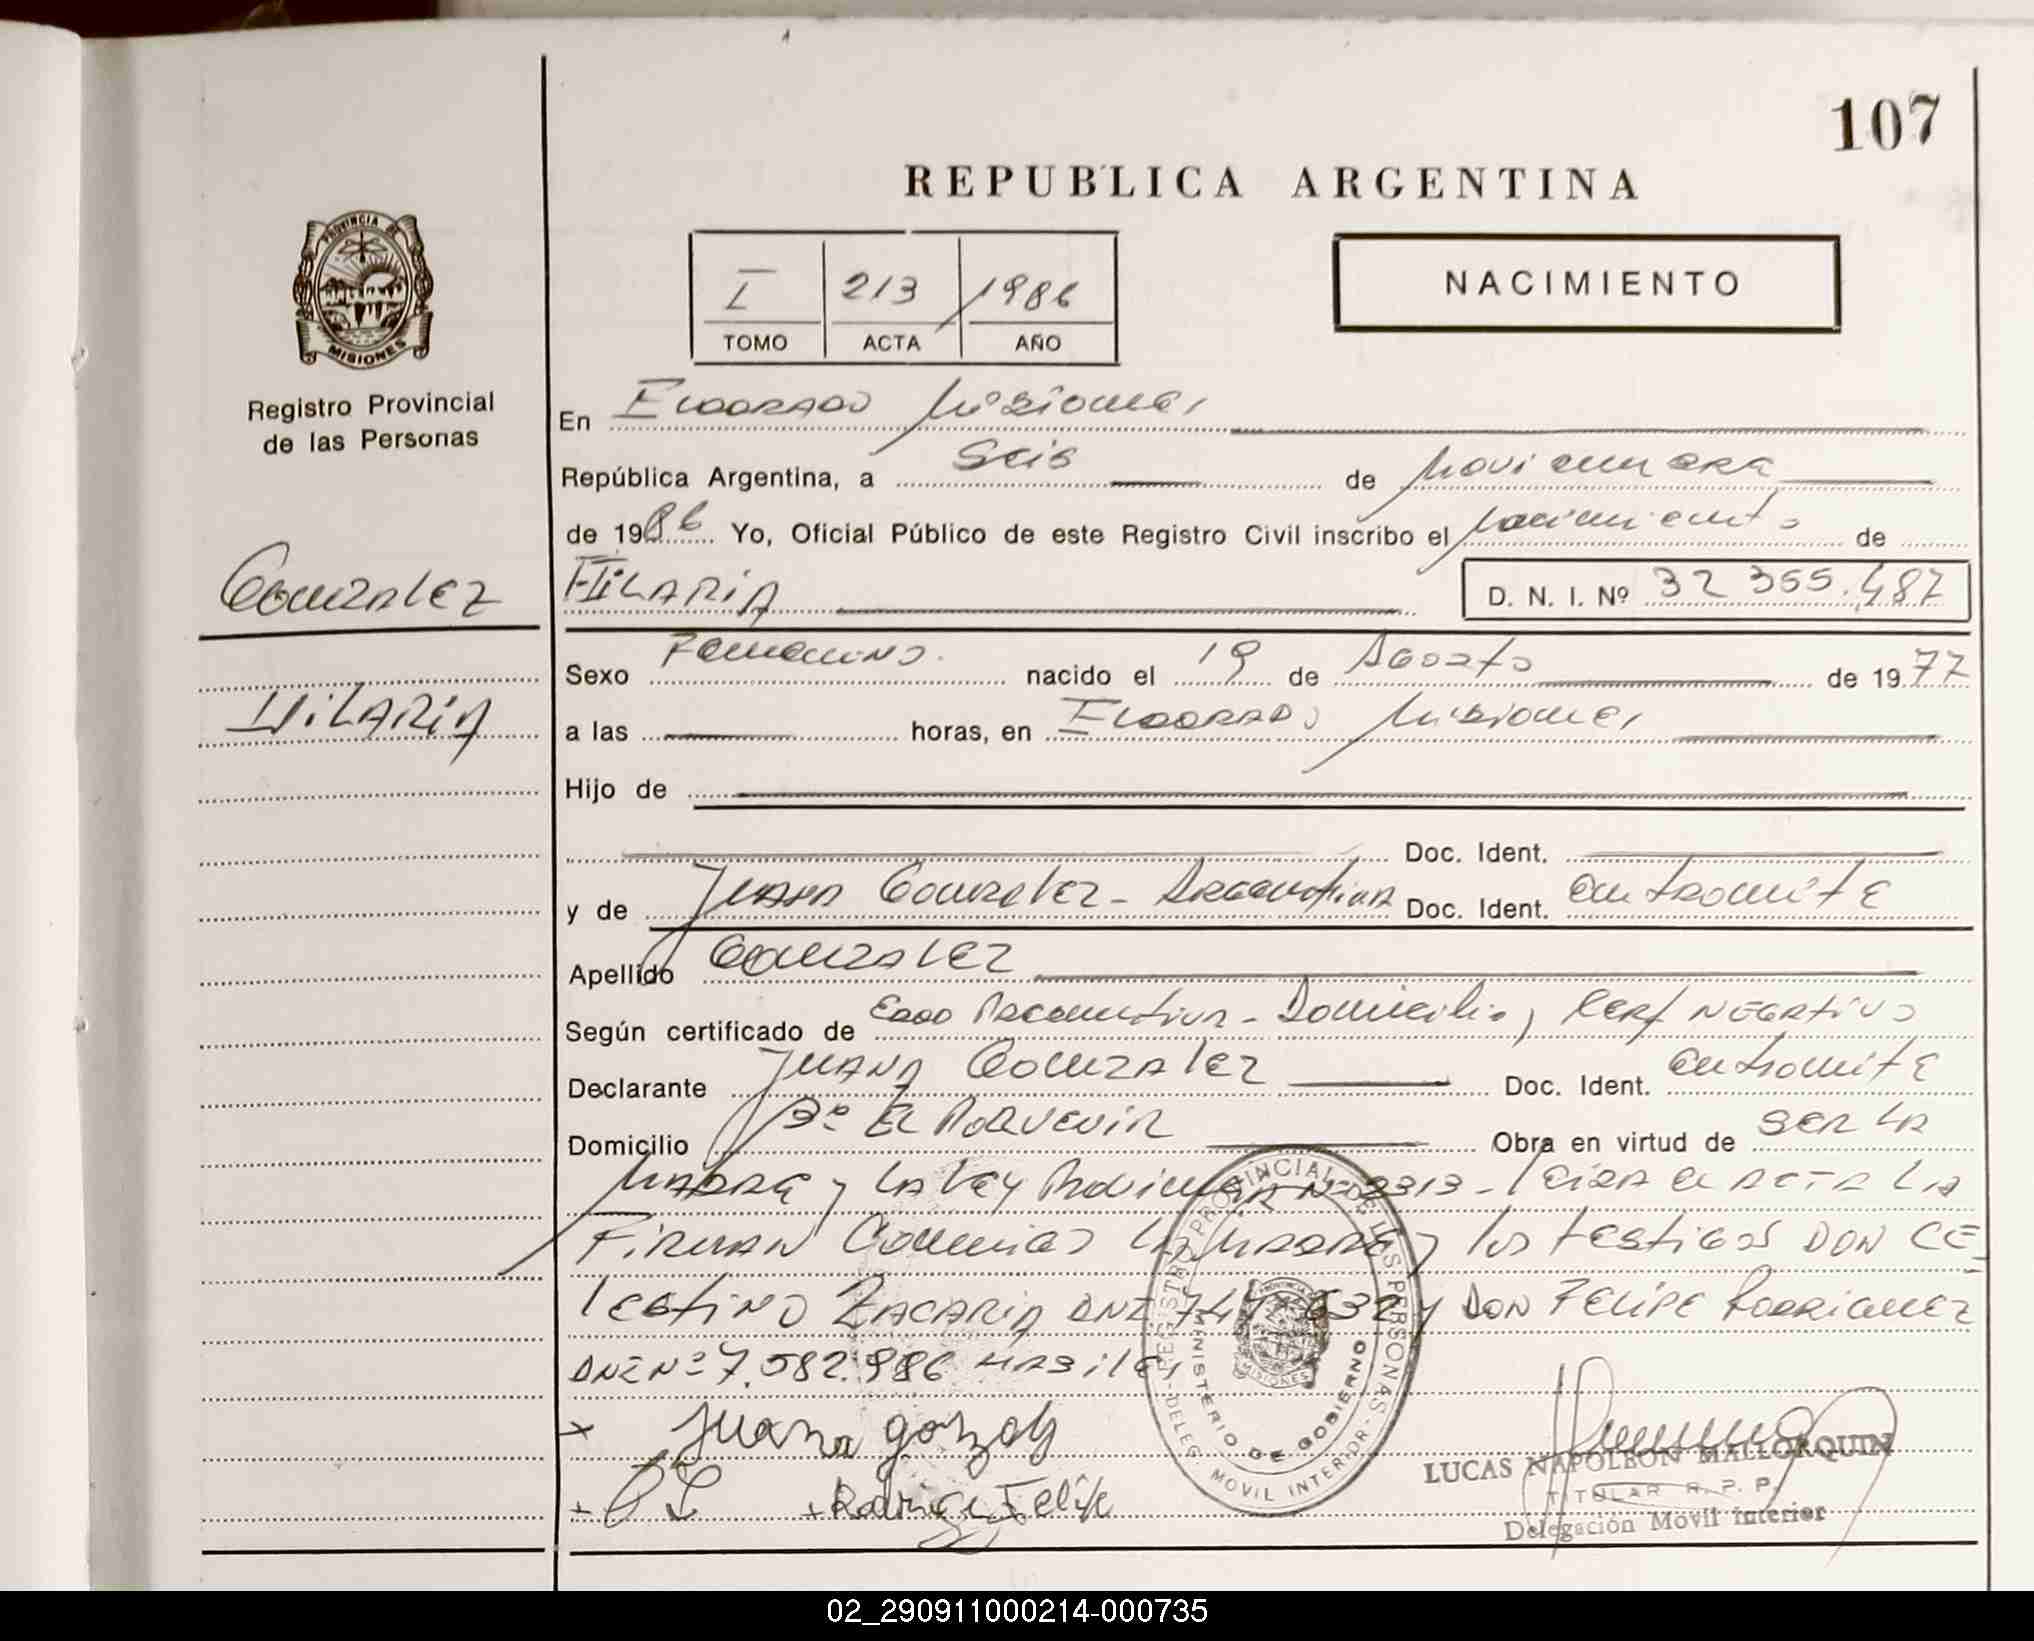 107
REPUBLICA ARGENTINA
I 213 1986
TOMO ACTA AÑO
NACIMIENTO
PROVINCIA DE MISIONES
Registro Provincial
de las Personas
Gonzalez
Hilaria
En Eldorado Misiones
República Argentina, a Seis de Noviembre
de 1986 Yo, Oficial Público de este Registro Civil inscribo el nacimiento de
Hilaria D. N. I. Nº 32 355.487
Sexo Femenino. nacido el 19 de Agosto de 1977
a las horas, en Eldorado Misiones
Hijo de
Doc. Ident.
y de Juana Gonzalez - Argentina Doc. Ident. en tramite
Apellido Gonzalez
Según certificado de Edad - Domicilio y Cert Negativo
Declarante Juana Gonzalez Doc. Ident. en tramite
Domicilio Bº El Porvenir Obra en virtud de Ser la
Madre y la Ley Provincial Nº 2313 - Leida el acta la
Firman Conmigo la Madre y los testigos Don Ce
lestino Zacaria DNI 632 y Don Felipe Rodriguez
DNI Nº 7.582.986 Habiles
x Juana
+ +
REGISTRO PROVINCIAL DE LAS PERSONAS
MINISTERIO DE GOBIERNO
DELEG. MOVIL INTERIOR
MISIONES
LUCAS NAPOLEON MALLORQUIN
TITULAR R. P. P.
Delegación Movil Interior
02_290911000214-000735